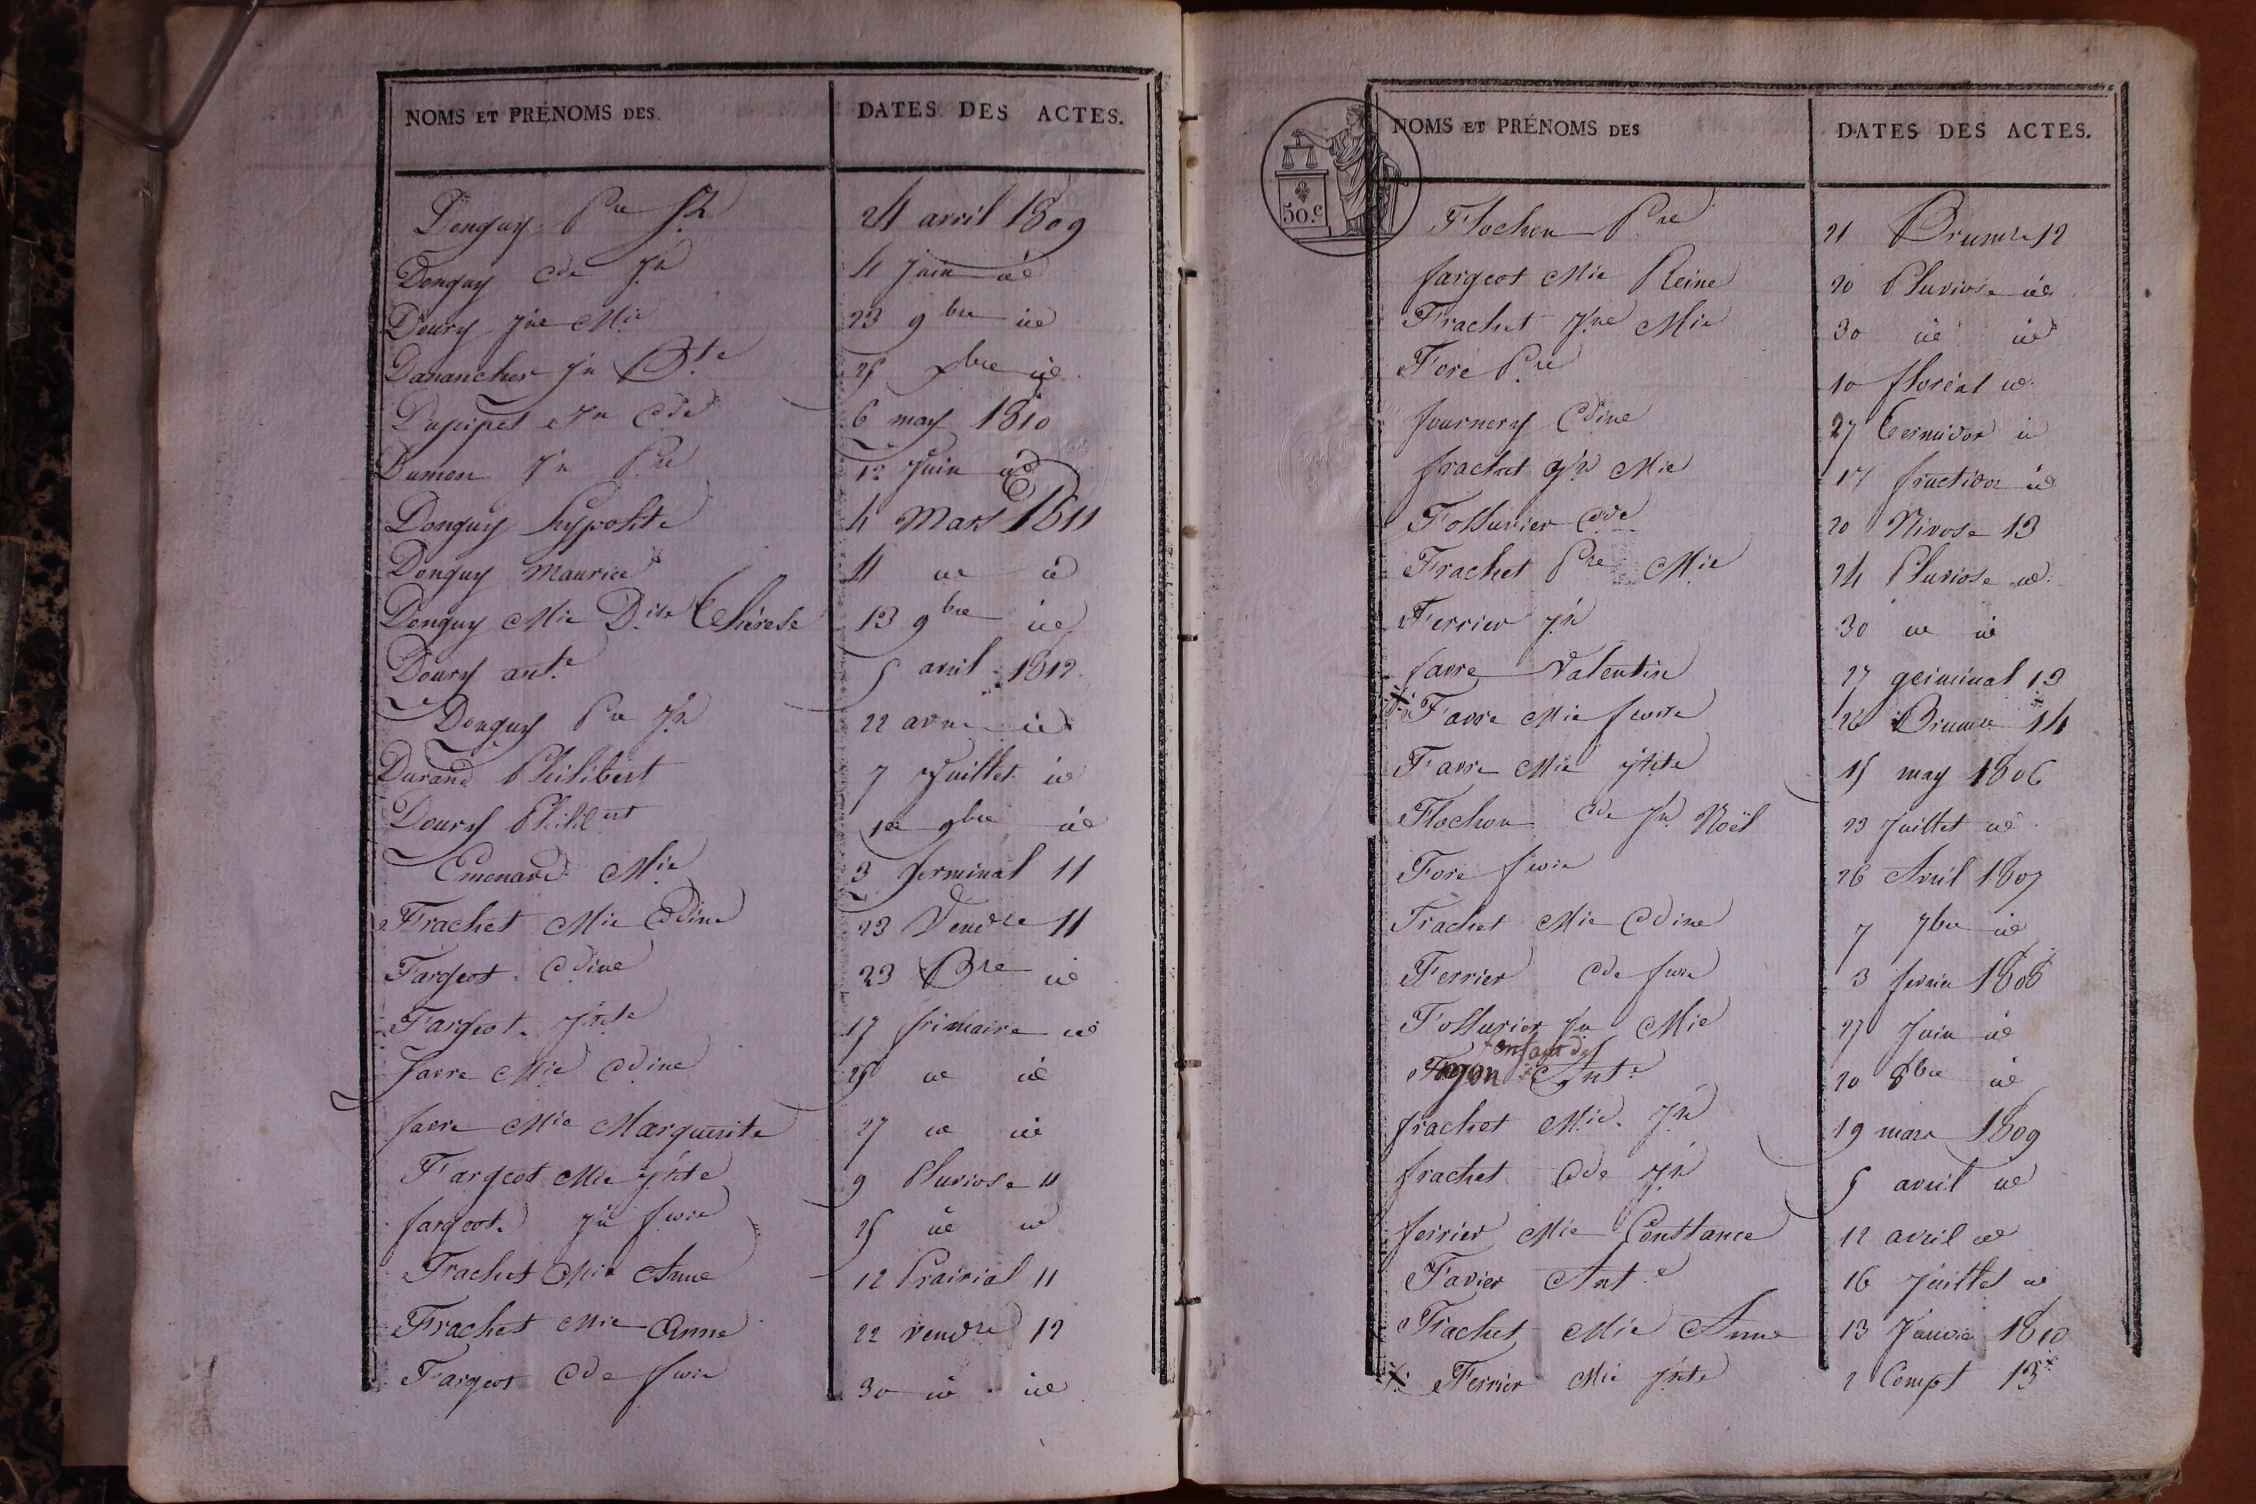 NOMS ET PRÉNOMS DES DATES DES ACTES.
Donguy Pre 24 avril 1809
Donguy Cde Jn 4 Juin id
Doury Jne Mie 23 9bre id
Danancher Jn Bte 25 id
Jn Cde 6 may 1810
Dumon Jn Pre 12 Juin id
Donguy hypolite 4 Mars 1811
Donguy Maurice 4 id id
Donguy Mie Thérese 13 9bre id
Doury ante 5 avril 1812
Donguy Pre Jn 22 id
Durand Philibert 7 Juillet id
Doury Philibert 9bre id
Emenard Mie 3 Germinal 11
Frachet Mie Cdine 23 Vendre 11
Fargeot Cdine 23 Bre id
Fargeot Jnte 17 frimaire id
favre Mie Cdine 25 id id
favre Mie Marguerite 27 id id
Fargeot Mie Jnte 9 Pluviose 11
fargeot Jn 25 id id
Frachet Mie Anne 12 Prairial 11
Frachet Mie Anne 22 Vendre 12
Fargeot Cde 30 id id
NOMS ET PRÉNOMS DES DATES DES ACTES.
50.c
Flochon Pre 21 Brumre 12
fargeot Mie Reine 20 Pluviose id
Frachet Jne Mie 30 id id
Foré Pre 10 floréal id
fournery Cdine 27 Termidor id
frachet Jn Mie 17 fructidor id
Folluvier Cde 20 Nivose 13
Frachet Pre Mie 24 Pluviose id
Ferrier Jn 30 id id
favre Valentin 27 geiminal 13
Favre Mie 26 Brumre 14
Favre Mie Jnte 15 may 1806
Flochon Cde Jn Noël 23 Juillet id
Foré 26 Avril 1807
Frachet Mie Cdine 7 7bre id
Ferrier Cde 3 fevrier 1808
Folluvier Jn Mie 27 Juin id
Ante 20 8bre id
frachet Mie Jn 19 mars 1809
frachet Cde Jn 5 avril id
ferrier Mie Constance 12 avril id
Favier Ante 16 Juillet id
Frachet Mie Anne 13 Janvier 1810
Ferrier Mie Jnte 2 Compt 13